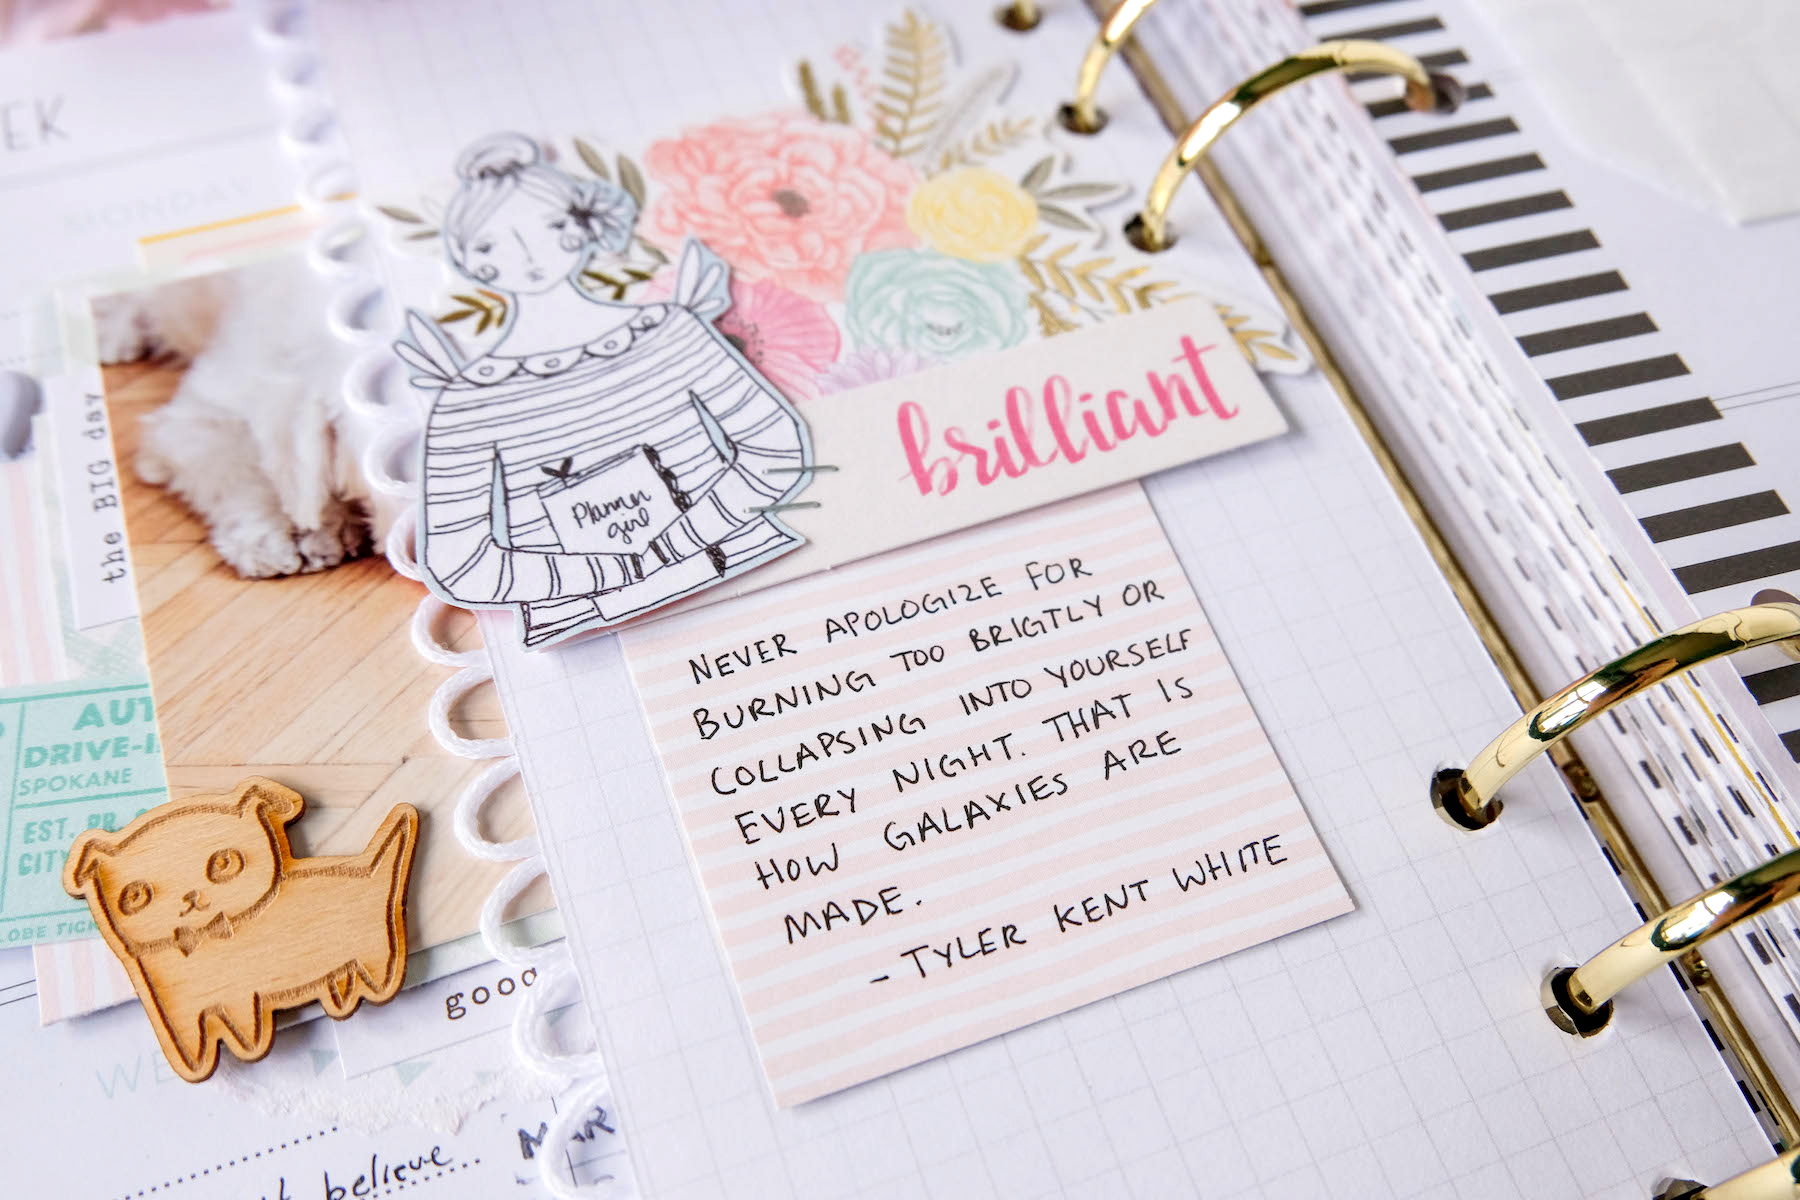 EK
MONDAY
the BIG day
Planner
girl
brilliant
NEVER APOLOGIZE FOR
BURNING TOO BRIGTLY OR
COLLAPSING INTO YOURSELF
EVERY NIGHT. THAT IS
HOW GALAXIES ARE
MADE.
- TYLER KENT WHITE
AUT
DRIVE-I
SPOKANE
EST.
CITY
LOBE TICK
good
WE
MAR
believe